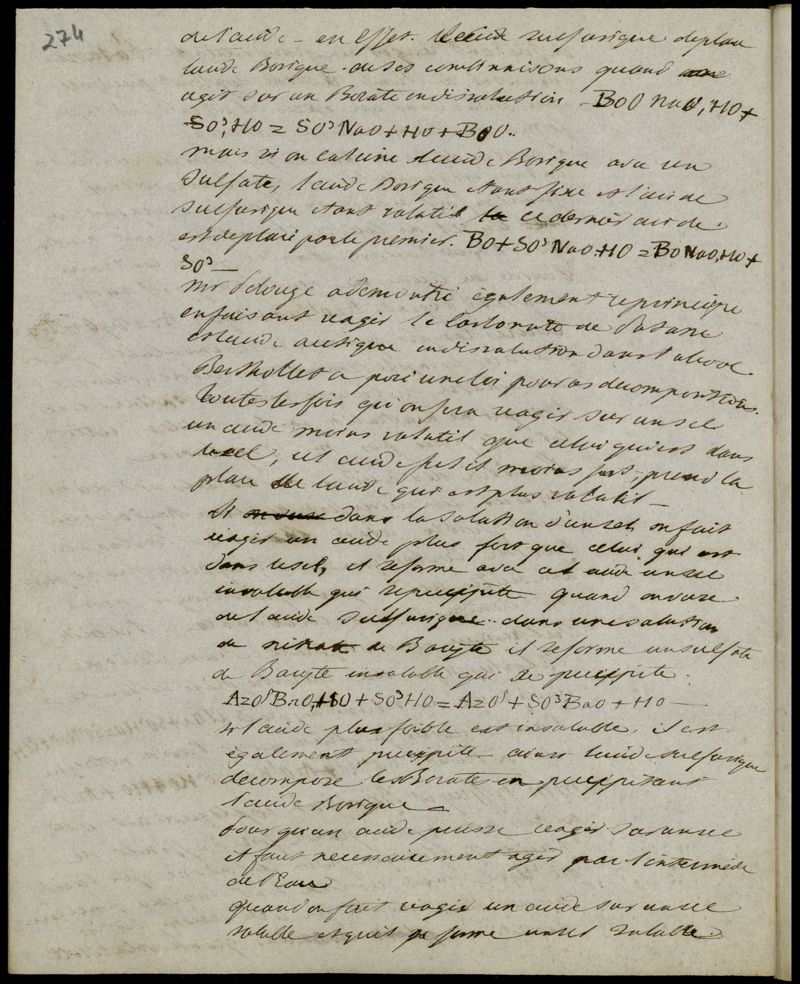 274
de l'acide - en effet. l'acide sulfurique deplace
l'acide Borique de ses combinaisons quand
agit sur un Borate en dissolution - BoO NaO, HO +
SO³, HO = SO³ NaO + HO + BoO..
mais si on calcine l'acide Borique avec un
sulfate, l'acide Borique etant fixe et l'acide
sulfurique etant volatil ce dernier acide
est deplacé par le premier. BO + SO³ NaO, HO = BO NaO, HO +
SO³ —
mr Pelouze a demontré également ce principe
en faisant reagir le Carbonate de Potasse
et l'acide acetique en dissolution dans l'alcool.
Berthollet a posé une loi pour ces decompositions.
Toutes les fois qu'on fera reagir sur un sel
un acide moins volatil que celui qui est dans
le sel, cet acide fut il moins fort, prend la
place de l'acide qui est plus volatil —
Si dans la solution d'un sel, on fait
reagir un acide plus fort que celui qui est
dans le sel, et se forme avec cet acide un sel
insoluble qui se precipite quand on verse
de l'acide sulfurique dans une solution
de nitrate de Baryte il se forme un sulfate
de Baryte insoluble qui se precipite.
AzO⁵ BaO, HO + SO³ HO = AzO⁵ + SO³ BaO + HO —
si l'acide plus foible est insoluble, il est
également precipité - ainsi l'acide sulfurique
decompose les Borates en precipitant
l'acide Borique —
Pour qu'un acide puisse reagir sur un sel
il faut necessairement agir par l'intermède
de l'Eau
quand on fait reagir un acide sur un sel
soluble et qu'il se forme un sel soluble.